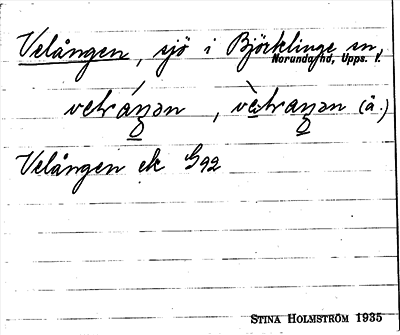 Velången, sjö i Björklinge sn,
Norunda hd, Upps. l.
Velången ek G92
STINA HOLMSTRÖM 1935